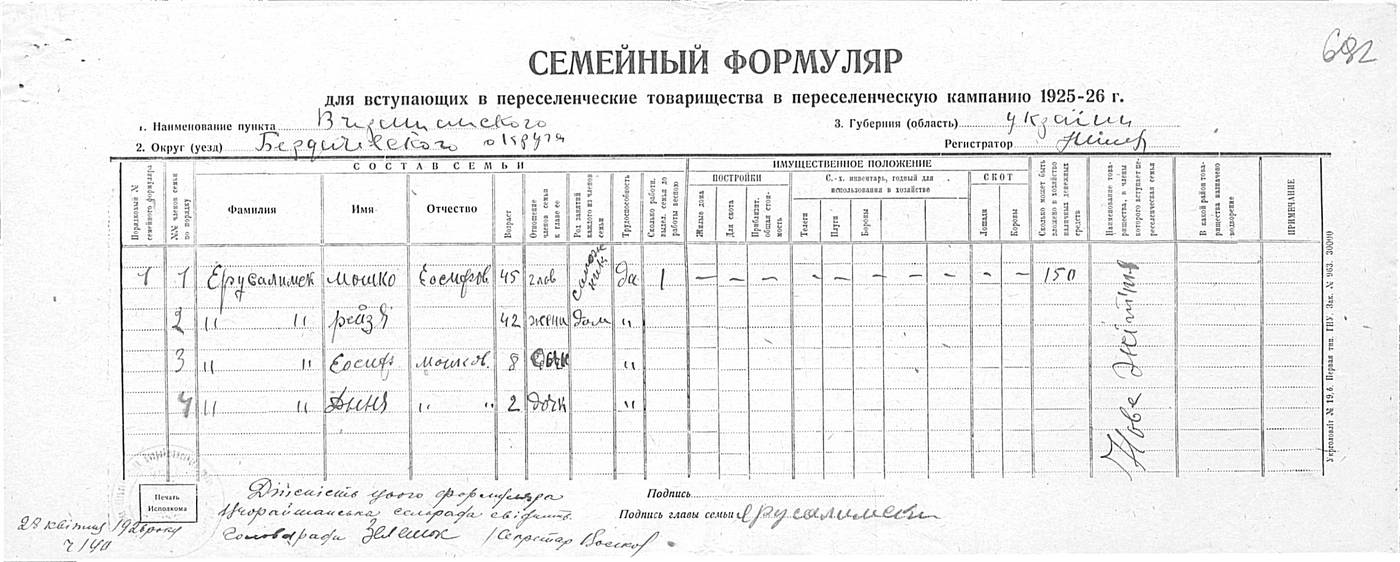 682
СЕМЕЙНЫЙ ФОРМУЛЯР
для вступающих в переселенческие товарищества в переселенческую кампанию 1925-26 г.
1. Наименование пункта
3. Губерния (область) україни
2. Округ (уезд) Бердичевского округа
Регистратор
СОСТАВ СЕМЬИ
ИМУЩЕСТВЕННОЕ ПОЛОЖЕНИЕ
ПОСТРОЙКИ
С.-х. инвентарь, годный для использования в хозяйстве
СКОТ
Порядковый № семейного формуляра
№№ членов семьи по порядку
Фамилия
Имя
Отчество
Возраст
Отношение членов семьи к главе ее
Род занятий каждого из членов семьи
Трудоспособность
Сколько работн. выдел. семья до работы весною
Жилые дома
Для скота
Приблизит. общая стоимость
Телеги
Плуги
Бороны
Лошади
Коровы
Сколько может быть вложено в хозяйство наличных денежных средств
Наименование товарищества, в члены которого вступает переселенческая семья
В какой район товарищества назначено водворение
ПРИМЕЧАНИЕ
1 1 Ерусалимск мошко Еосифов 45 глов да 1 — — — — — — — — 150
2 " " рейзя 42 жена дом "
3 " " Еосиф мошков. 8 "
4 " " " " 2 дочк "
Нове Життя
Укрголовліт № 19.6. Первая тип. ГПУ. Зак. № 963. 30000
Печать Исполкома
Дійсність цього формуляра
сельрада свідчить
Подпись
Подпись главы семьи Ерусалимски
Секретар
квітня 1926 року